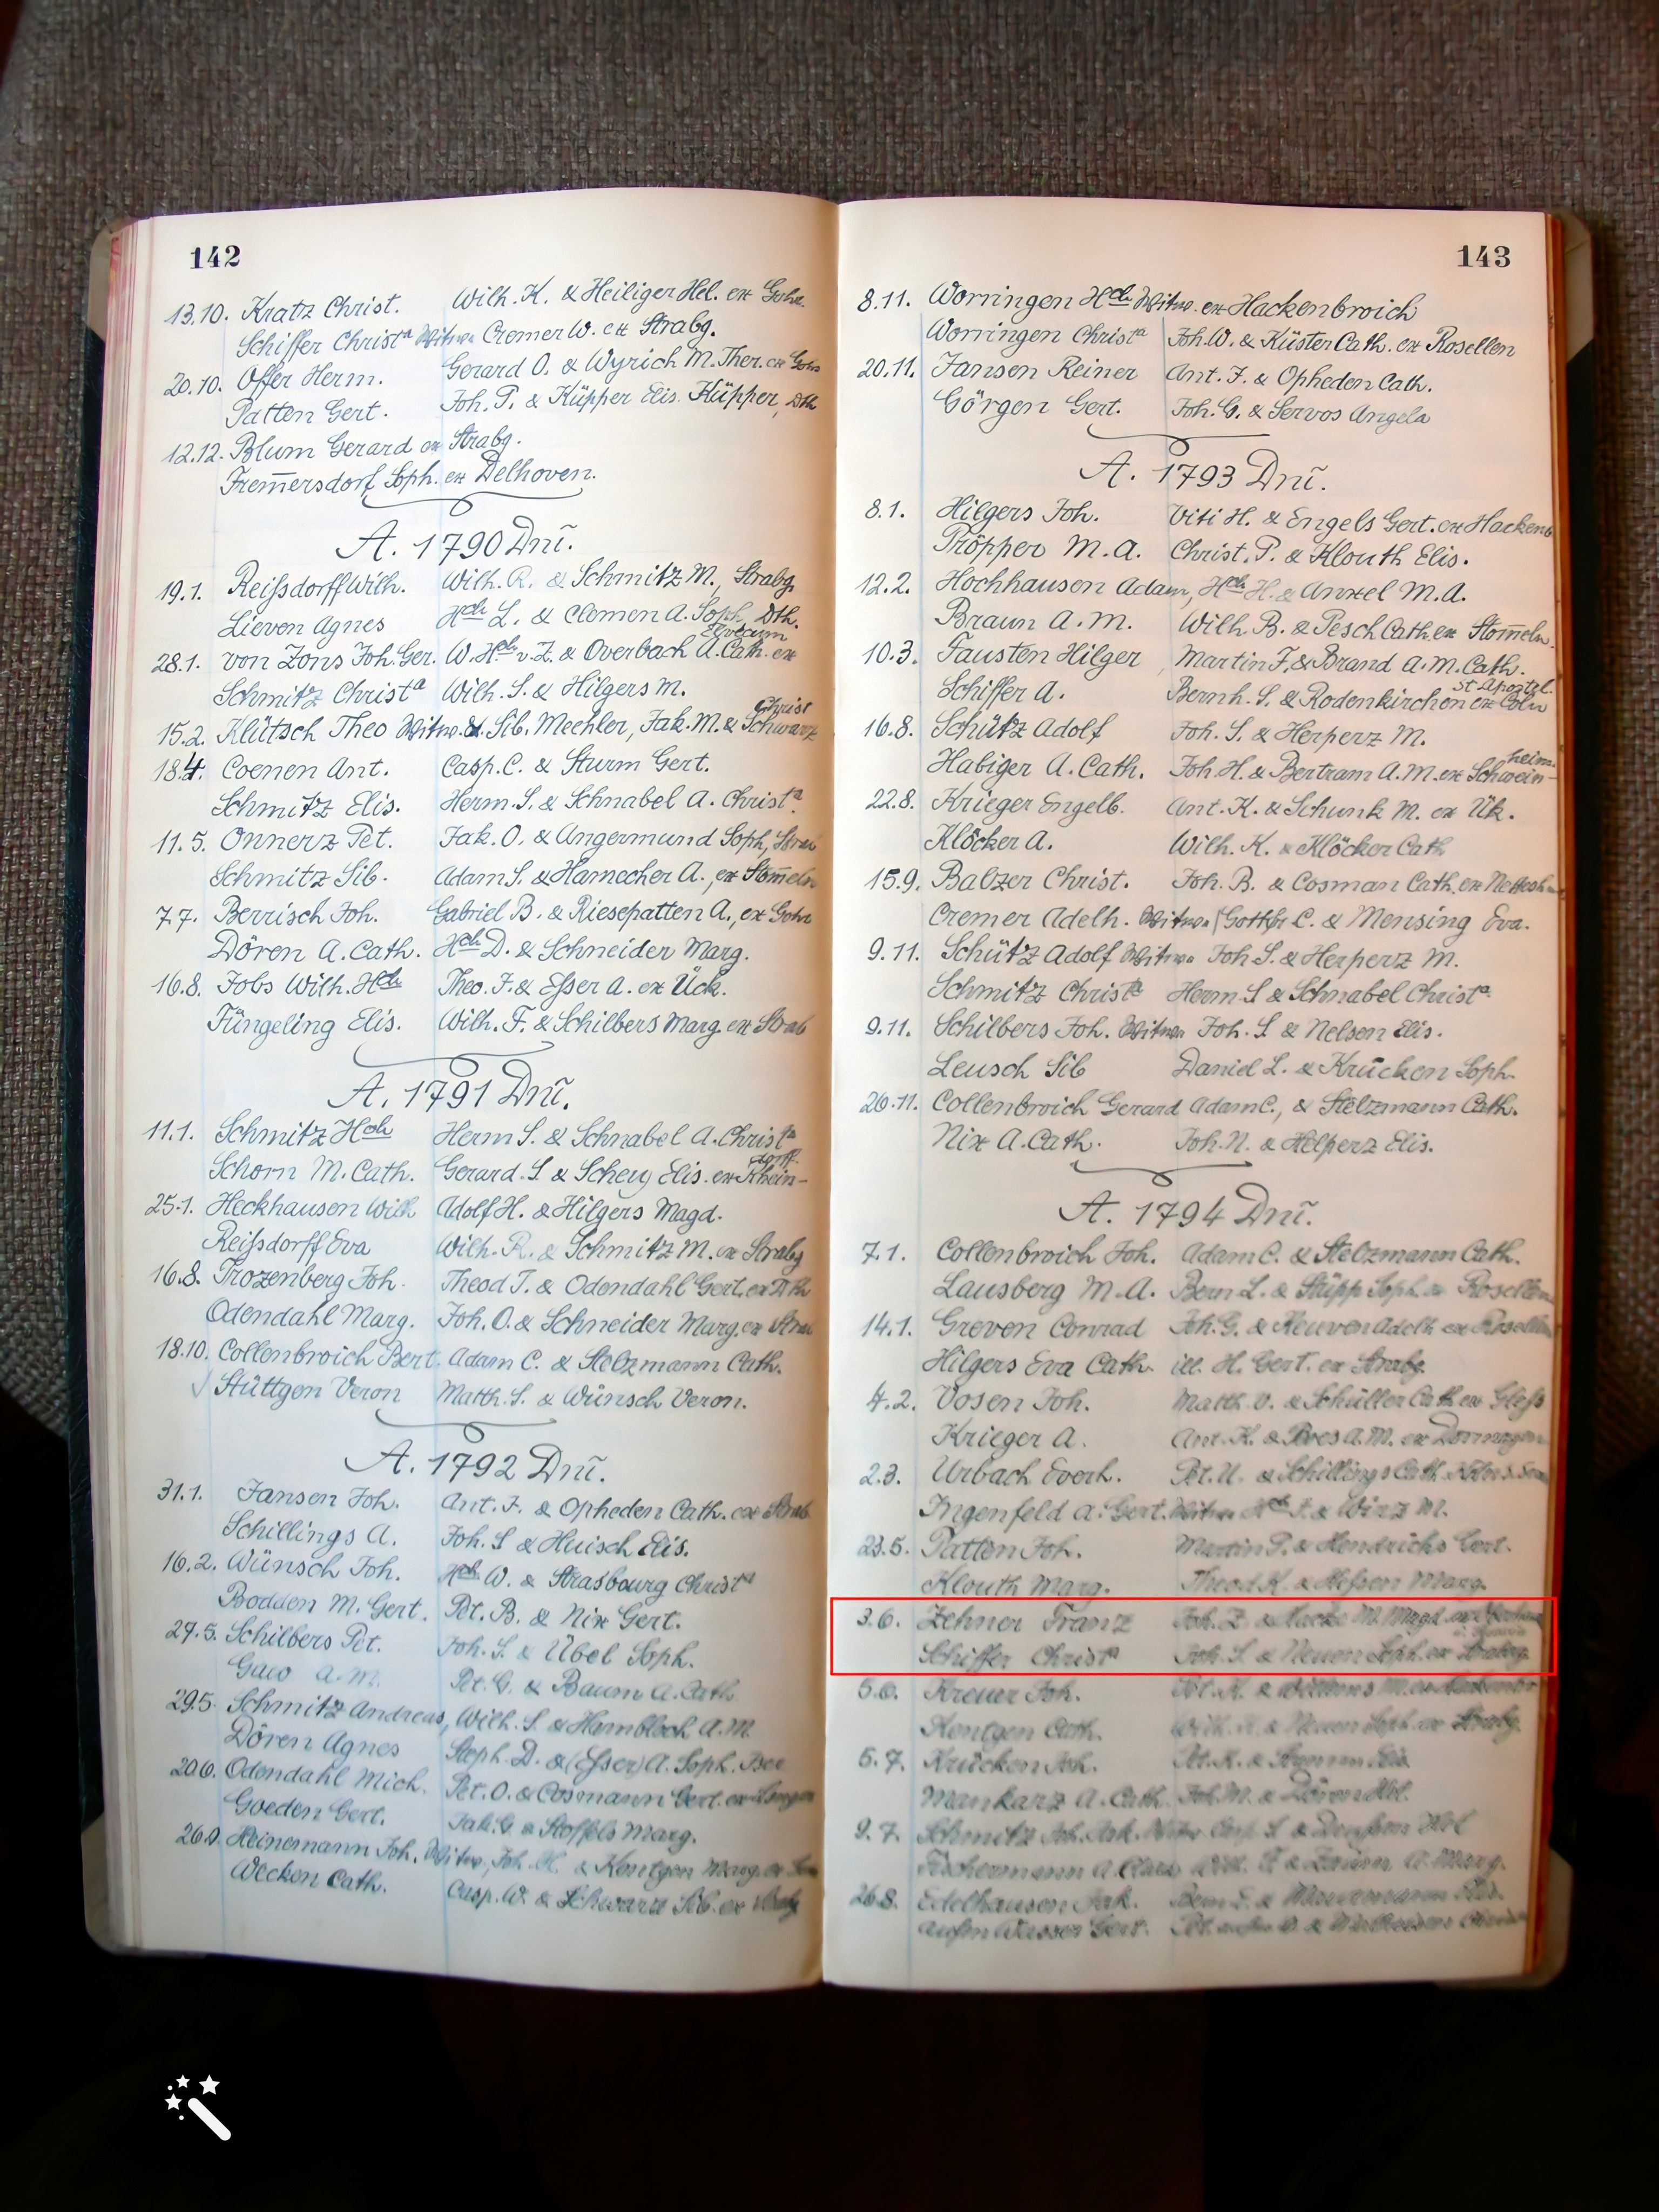 142
13.10. Kratz Christ. Wilh. K. & Heiliger Hel. ex Gohr.
Schiffer Christª Witwe Cremer W. ex Strabg.
20.10. Offer Herm. Gerard O. & Wyrich M. Ther. ex Gohr
Patten Gert. Joh. P. & Küpper Elis. Küpper, Dth
12.12. Blum Gerard ex Strabg.
Frem̄ersdorf Soph. ex Delhoven.
A. 1790 Dnī.
19.1. Reißdorff Wilh. Wilh. R. & Schmitz M., Strabg.
Lieven Agnes Hch L. & Clemen A. Soph, Dth.
28.1. von Zons Joh. Ger. W. Hch v. Z. & Overbach A. Cath. ex
Schmitz Christª Wilh. S. & Hilgers M.
15.2. Klütsch Theo Witwe. d. Sib. Mechler, Jak. M. & Christ Schwarz
18.4. Coenen Ant. Casp. C. & Sturm Gert.
Schmitz Elis. Herm. S. & Schnabel A. Christª.
11.5. Onnerz Pet. Jak. O. & Angermund Soph, Strab
Schmitz Sib. Adam S. & Hamecher A., ex Stom̄eln
7.7. Berrisch Joh. Gabriel B. & Riesepatten A., ex Gohr
Dören A. Cath. Hch D. & Schneider Marg.
16.8. Jobs Wilh. Hch Theo. J. & Esser A. ex Ück.
Füngeling Elis. Wilh. F. & Schilbers Marg. ex Strab
A. 1791 Dnī.
11.1. Schmitz Hch Herm S. & Schnabel A. Christª
Schorn M. Cath. Gerard. S & Schey Elis. ex Rhein-dorff.
25.1. Heckhausen Wilh Adolf H. & Hilgers Magd.
Reißdorff Eva Wilh. R. & Schmitz M. ex Strabg
16.8. Trozenberg Joh. Theod T. & Odendahl Gert. ex Dth
Odendahl Marg. Joh. O. & Schneider Marg. ex Strab
18.10. Collenbroich Bert. Adam C. & Stelzmann Cath.
Stüttgen Veron Matth. S. & Wünsch Veron.
A. 1792 Dnī.
31.1. Jansen Joh. Ant. J. & Opheden Cath. ex Strab
Schillings A. Joh. S & Huisch Elis.
16.2. Wünsch Joh. Hch W. & Strasbourg Christª
Bodden M. Gert. Pet. B. & Nix Gert.
27.5. Schilbers Pet. Joh. S. & Übel Soph.
A. M. Pet. G. & Baum A. Cath.
29.5. Schmitz Andreas, Wilh. S. & Hambloch A. M.
Dören Agnes Steph. D. & (Esser) A. Soph.
20.6. Odendahl Mich. Pet. O. & Cosmann Gert. ex
Goeden Gert. Jak. G & Stoffels Marg.
Heinemann Joh. Witwe, Joh. H. & Kentgen Marg.
Wecken Cath. Casp. W. & Schwartz Sib. ex Strabg
143
8.11. Worringen Hch Witwe. ex Hackenbroich
Worringen Christª Joh. W. & Küster Cath. ex Rosellen
20.11. Jansen Reiner Ant. J. & Opheden Cath.
Görgen Gert. Joh. G. & Servos Angela
A. 1793 Dnī.
8.1. Hilgers Joh. Viti H. & Engels Gert. ex Hackenb
Pröpper M. A. Christ. P. & Klouth Elis.
12.2. Hochhausen Adam, Hch H. & Anxel M. A.
Braun A. M. Wilh. B. & Pesch Cath ex Stom̄eln.
10.3. Fausten Hilger Martin F, & Brand A. M. Cath.
Schiffer A. Bernh. S. & Rodenkirchen ex St Apostel. Cöln
16.8. Schütz Adolf Joh. S. & Herperz M.
Habiger A. Cath. Joh. H. & Bertram A. M. ex Schwein-heim.
22.8. Krieger Engelb. Ant. K. & Schunk M. ex Ük.
Klöcker A. Wilh. K. & Klöcker Cath
15.9. Balzer Christ. Joh. B. & Cosman Cath. ex
Cremer Adelh. Witwe (Gottfr C. & Mensing Eva.
9.11. Schütz Adolf Witwe Joh S. & Herperz M.
Schmitz Christª Herm S & Schnabel Christª
9.11. Schilbers Joh. Witwe Joh. S & Nelsen Elis.
Leusch Sib Daniel L. & Krücken Soph.
26.11. Collenbroich Gerard Adam C., & Stelzmann Cath.
Nix A. Cath. Joh. N. & Helperz Elis.
A. 1794 Dnī.
7.1. Collenbroich Joh. Adam C. & Stelzmann Cath.
Lausberg M. A. Bern L. & Stüpp Soph. ex Rosellen
14.1. Greven Conrad Joh. G. & Neuven Adelh ex Rosellen
Hilgers Eva Cath. ill. H. Gert. ex Strabg.
4.2. Vosen Joh. Matth. V. & Schüller Cath ex Gless
Krieger A. Ant. K. & A. M. ex Dormagen
2.3. Urbach Everh. Pet. U. & Schillings Cath.
Ingenfeld A. Gert. Witwe Hch J. & Wirz M.
23.5. Patten Joh. Martin P. & Hendrichs Gert.
Klouth Marg. Theod. K. & Hessen Marg.
3.6. Zehner Franz Joh. Z. & Hacke M. Magd.
Schiffer Christª Joh. S & Neuen Soph. ex Straberg.
5.6. Kreuer Joh. Pet. K. &
Kentgen Cath. Wilh. K. & Neuen Soph. ex Strabg.
5.7. Krücken Joh. Pet. K. &
Mankarz A. Cath. Joh. M. & Dören Hel.
9.7. Schmitz Joh. Jak. Witwe Casp. S &
Fischermann A. Clara Wilh. F &
26.8. Edelhausen Jak.
aufm Wasser Gert. Pet.